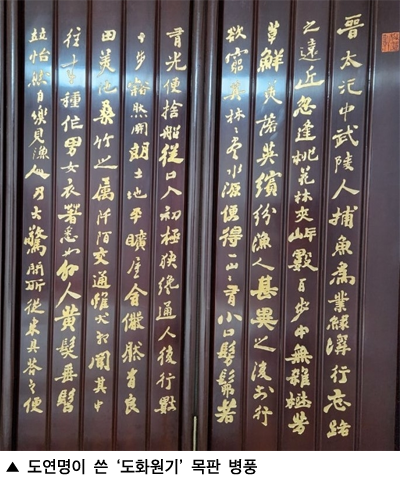 晉太元中武陵人捕魚爲業緣溪行忘路
之遠近忽逢桃花林夾岸數百步中無雜樹芳
草鮮美落英繽紛漁人甚異之復前行
欲窮其林々盡水源便得一山々有小口髣髴若
有光便捨船從口入初極狹纔通人復行數
十步豁然開朗土地平曠屋舍儼然有良
田美池桑竹之屬阡陌交通雞犬相聞其中
往來種作男女衣著悉如外人黃髮垂髫
並怡然自樂見漁人乃大驚問所從來具答之便
▲ 도연명이 쓴 '도화원기' 목판 병풍